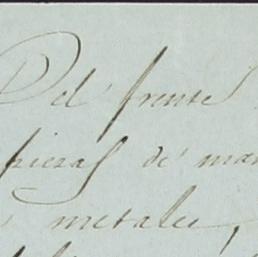 Del frente
piezas de mar
metales,